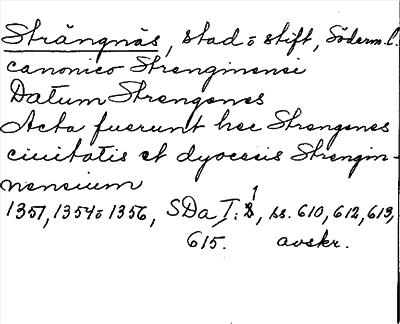 Strängnäs, stad o stift, Söderm.l.
canonico Strenginensi
Datum Strengenes
Acta fuerunt hec Strengenes
ciuitatis et dyocesis Strengin-
nensium
1351, 1354 o 1356, SDa I: 1, ss. 610, 612, 613,
615. avskr.